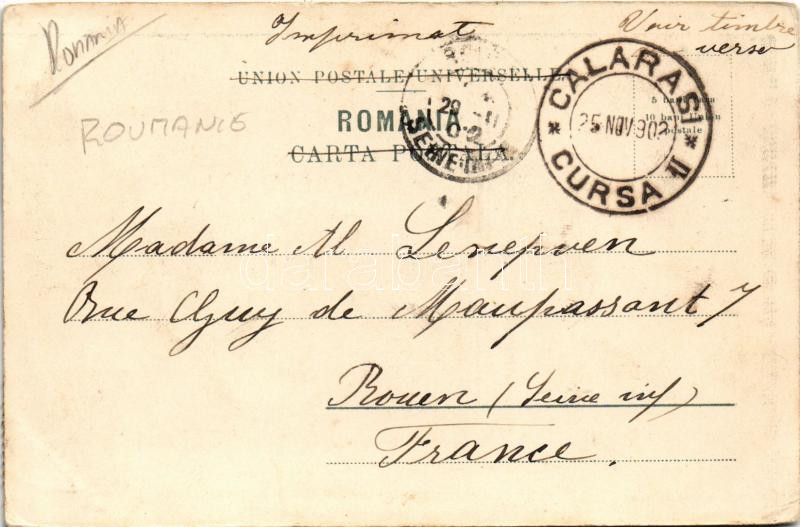 Romania
Imprimat
Voir timbre
verso
UNION POSTALE UNIVERSELLE
ROUMANIE
ROMANIA
CARTA POSTALA.
29
02
SEINE-INF
CALARASI
25 NOV 902
CURSA II
5 bani
10 bani Union
postale
Madame M Senepven
Rue Guy de Maupassant 7
Rouen (Seine inf)
France.
darabanth